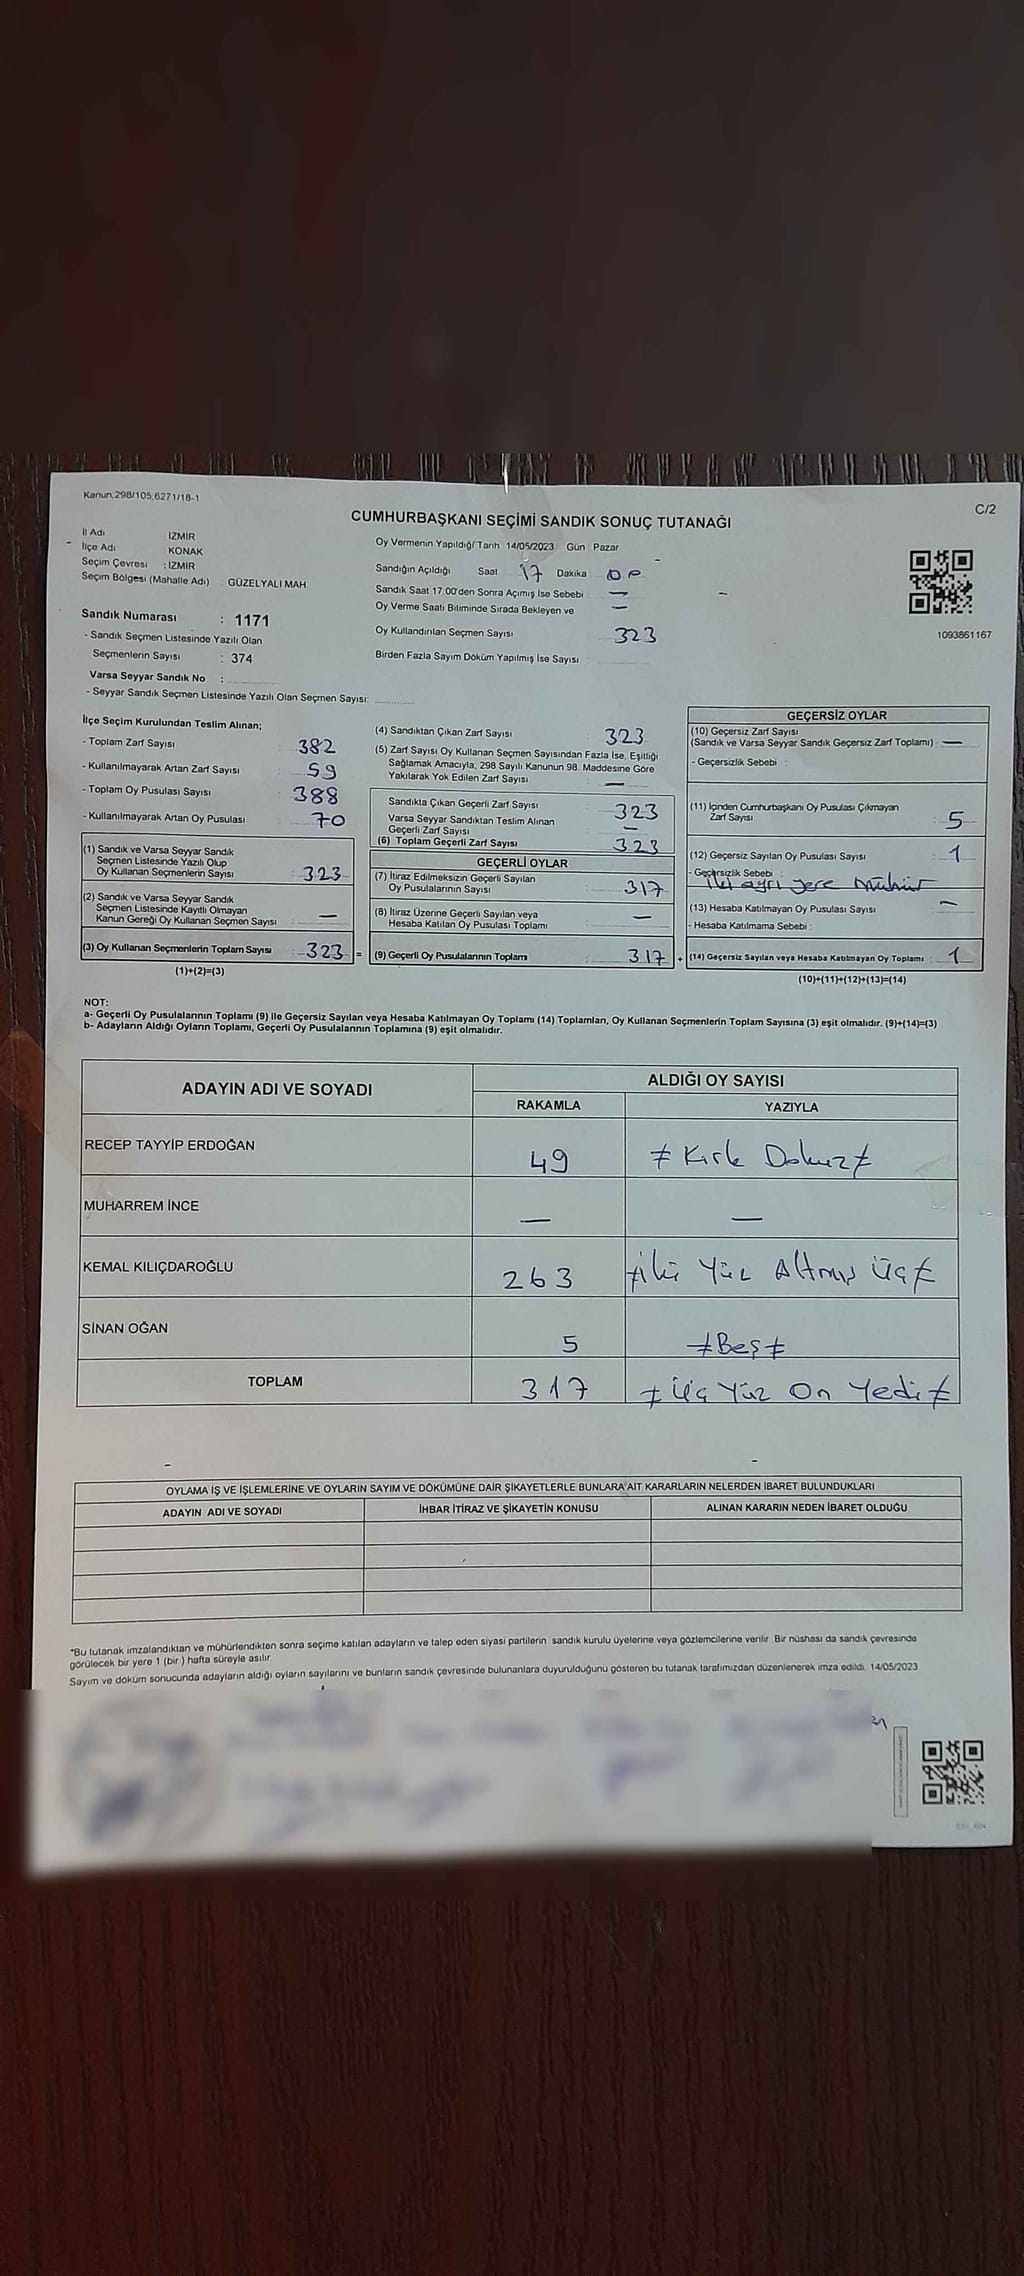 Kanun.298/105,6271/18-1
C/2
CUMHURBAŞKANI SEÇİMİ SANDIK SONUÇ TUTANAĞI
İl Adı İZMİR
İlçe Adı KONAK
Seçim Çevresi : İZMİR
Seçim Bölgesi (Mahalle Adı) GÜZELYALI MAH
Sandık Numarası : 1171
- Sandık Seçmen Listesinde Yazılı Olan
Seçmenlerin Sayısı : 374
Varsa Seyyar Sandık No :
- Seyyar Sandık Seçmen Listesinde Yazılı Olan Seçmen Sayısı:
Oy Vermenin Yapıldığı Tarih 14/05/2023 Gün : Pazar
Sandığın Açıldığı Saat 17 Dakika 00
Sandık Saat 17:00'den Sonra Açımış İse Sebebi : —
Oy Verme Saati Bitiminde Sırada Bekleyen ve —
Oy Kullandırılan Seçmen Sayısı 323
Birden Fazla Sayım Döküm Yapılmış İse Sayısı
1093861167
İlçe Seçim Kurulundan Teslim Alınan;
- Toplam Zarf Sayısı : 382
- Kullanılmayarak Artan Zarf Sayısı : 59
- Toplam Oy Pusulası Sayısı : 388
- Kullanılmayarak Artan Oy Pusulası : 70
(1) Sandık ve Varsa Seyyar Sandık
Seçmen Listesinde Yazılı Olup
Oy Kullanan Seçmenlerin Sayısı : 323
(2) Sandık ve Varsa Seyyar Sandık
Seçmen Listesinde Kayıtlı Olmayan
Kanun Gereği Oy Kullanan Seçmen Sayısı : —
(3) Oy Kullanan Seçmenlerin Toplam Sayısı : 323 =
(1)+(2)=(3)
(4) Sandıktan Çıkan Zarf Sayısı : 323
(5) Zarf Sayısı Oy Kullanan Seçmen Sayısından Fazla İse, Eşitliği
Sağlamak Amacıyla, 298 Sayılı Kanunun 98. Maddesine Göre
Yakılarak Yok Edilen Zarf Sayısı : —
Sandıkta Çıkan Geçerli Zarf Sayısı : 323
Varsa Seyyar Sandıktan Teslim Alınan
Geçerli Zarf Sayısı : —
(6) Toplam Geçerli Zarf Sayısı : 323
GEÇERLİ OYLAR
(7) İtiraz Edilmeksizin Geçerli Sayılan
Oy Pusulalarının Sayısı : 317
(8) İtiraz Üzerine Geçerli Sayılan veya
Hesaba Katılan Oy Pusulası Toplamı : —
(9) Geçerli Oy Pusulalarının Toplamı : 317 +
GEÇERSİZ OYLAR
(10) Geçersiz Zarf Sayısı
(Sandık ve Varsa Seyyar Sandık Geçersiz Zarf Toplamı) : —
- Geçersizlik Sebebi :
(11) İçinden Cumhurbaşkanı Oy Pusulası Çıkmayan
Zarf Sayısı : 5
(12) Geçersiz Sayılan Oy Pusulası Sayısı : 1
- Geçersizlik Sebebi :
İki ayrı yere mühür
(13) Hesaba Katılmayan Oy Pusulası Sayısı : —
- Hesaba Katılmama Sebebi :
(14) Geçersiz Sayılan veya Hesaba Katılmayan Oy Toplamı : 1
(10)+(11)+(12)+(13)=(14)
NOT:
a- Geçerli Oy Pusulalarının Toplamı (9) ile Geçersiz Sayılan veya Hesaba Katılmayan Oy Toplamı (14) Toplamları, Oy Kullanan Seçmenlerin Toplam Sayısına (3) eşit olmalıdır. (9)+(14)=(3)
b- Adayların Aldığı Oyların Toplamı, Geçerli Oy Pusulalarının Toplamına (9) eşit olmalıdır.
ADAYIN ADI VE SOYADI ALDIĞI OY SAYISI
RAKAMLA YAZIYLA
RECEP TAYYİP ERDOĞAN 49 ≠ Kırk Dokuz ≠
MUHARREM İNCE — —
KEMAL KILIÇDAROĞLU 263 ≠ İki Yüz Altmış Üç ≠
SİNAN OĞAN 5 ≠ Beş ≠
TOPLAM 317 ≠ Üç Yüz On Yedi ≠
OYLAMA İŞ VE İŞLEMLERİNE VE OYLARIN SAYIM VE DÖKÜMÜNE DAİR ŞİKAYETLERLE BUNLARA AİT KARARLARIN NELERDEN İBARET BULUNDUKLARI
ADAYIN ADI VE SOYADI İHBAR İTİRAZ VE ŞİKAYETİN KONUSU ALINAN KARARIN NEDEN İBARET OLDUĞU
*Bu tutanak imzalandıktan ve mühürlendikten sonra seçime katılan adayların ve talep eden siyasi partilerin sandık kurulu üyelerine veya gözlemcilerine verilir. Bir nüshası da sandık çevresinde
görülecek bir yere 1 (bir ) hafta süreyle asılır.
Sayım ve döküm sonucunda adayların aldığı oyların sayılarını ve bunların sandık çevresinde bulunanlara duyurulduğunu gösteren bu tutanak tarafımızdan düzenlenerek imza edildi. 14/05/2023